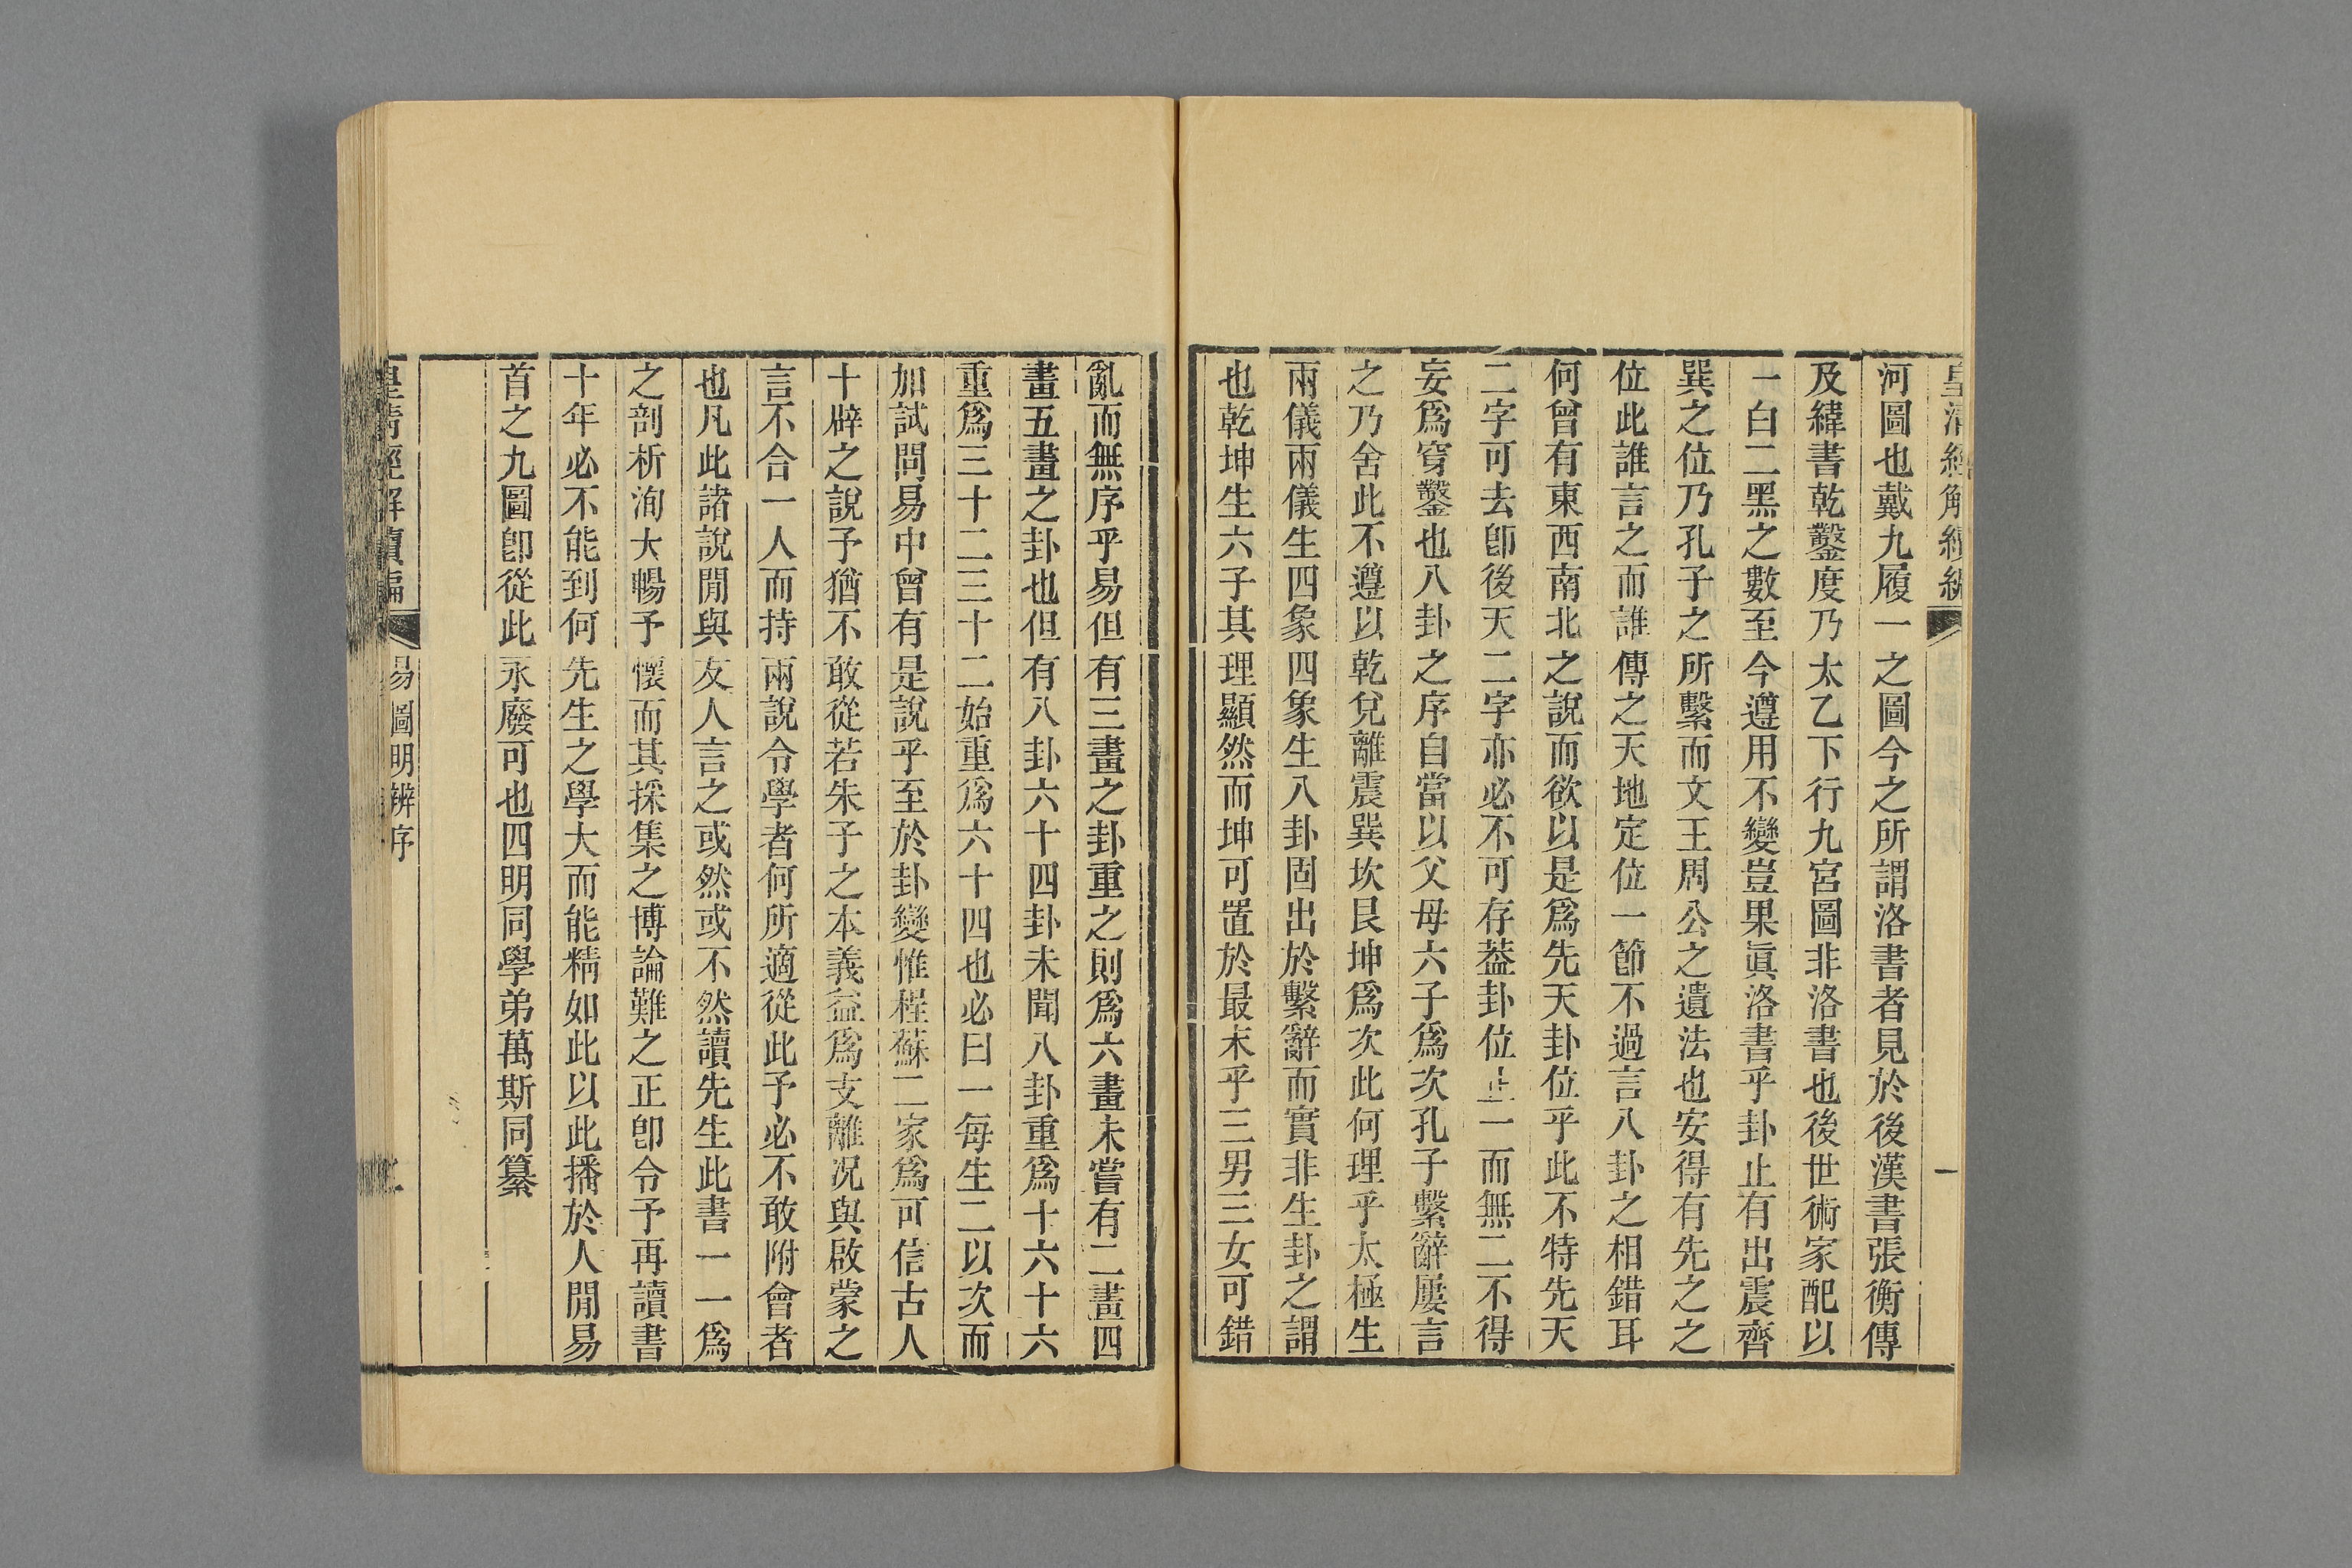 皇清經解續編
一
河圖也戴九履一之圖今之所謂洛書者見於後漢書張衡傳
及緯書乾鑿度乃太乙下行九宮圖非洛書也後世術家配以
一白二黑之數至今遵用不變豈果眞洛書乎卦止有出震齊
巽之位乃孔子之所繫而文王周公之遺法也安得有先之之
位此誰言之而誰傳之天地定位一節不過言八卦之相錯耳
何曾有東西南北之說而欲以是爲先天卦位乎此不特先天
二字可去卽後天二字亦必不可存葢卦位止一而無二不得
妄爲穿鑿也八卦之序自當以父母六子爲次孔子繫辭屢言
之乃舍此不遵以乾兌離震巽坎艮坤爲次此何理乎太極生
兩儀兩儀生四象四象生八卦固出於繫辭而實非生卦之謂
也乾坤生六子其理顯然而坤可置於最末乎三男三女可錯
亂而無序乎易但有三畫之卦重之則爲六畫未嘗有二畫四
畫五畫之卦也但有八卦六十四卦未聞八卦重爲十六十六
重爲三十二三十二始重爲六十四也必曰一每生二以次而
加試問易中曾有是說乎至於卦變惟程蘇二家爲可信古人
十辟之說予猶不敢從若朱子之本義益爲支離况與啟蒙之
言不合一人而持兩說令學者何所適從此予必不敢附會者
也凡此諸說閒與友人言之或然或不然讀先生此書一一爲
之剖析洵大暢予懷而其採集之博論難之正卽令予再讀書
十年必不能到何先生之學大而能精如此以此播於人閒易
首之九圖卽從此永廢可也四明同學弟萬斯同纂
皇清經解續編
易圖明辨序
二